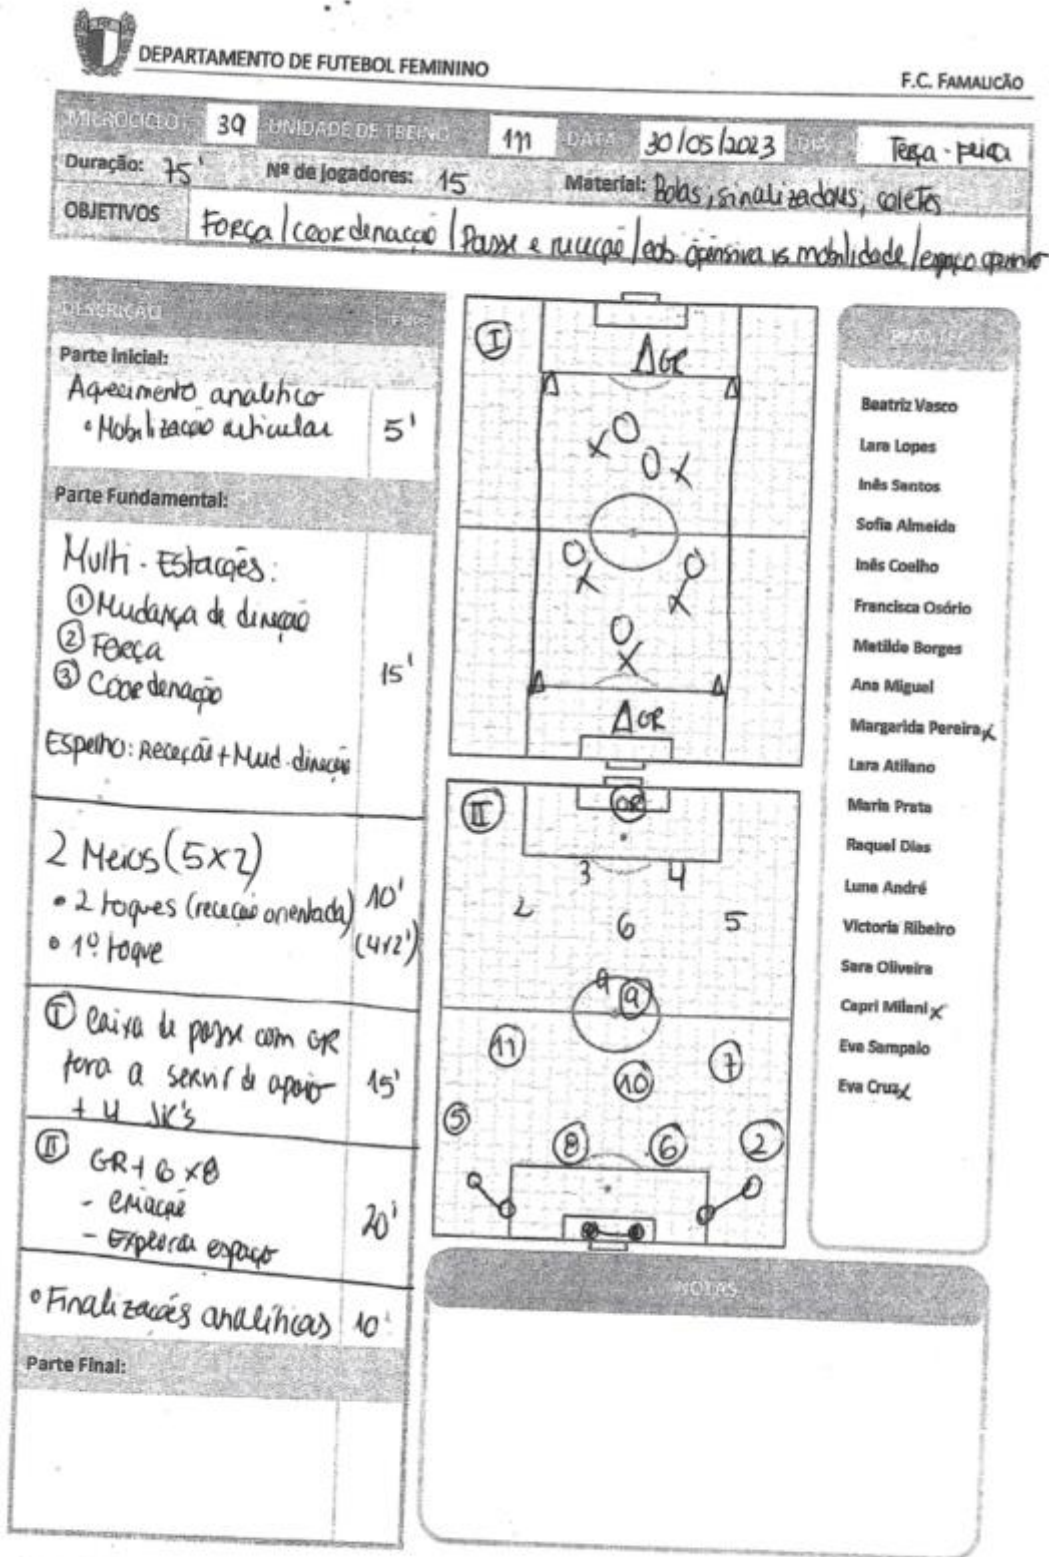 DEPARTAMENTO DE FUTEBOL FEMININO
F.C. FAMALICÃO
MICROCICLO: 39 UNIDADE DE TREINO 111 DATA 30/05/2023 DIA Terça-feira
Duração: 75' Nº de jogadores: 15 Material: Bolas; sinalizadores; coletes
OBJETIVOS Força / coordenação / Passe e receção / ofensiva vs mobilidade / espaço
DESCRIÇÃO
Parte Inicial:
Aquecimento analítico
• Mobilização articular 5'
Parte Fundamental:
Multi-Estações:
① Mudança de direção
② Força
③ Coordenação
15'
Espelho: Receção + Mud. direção
2 Meios (5x2)
• 2 toques (receção orientada) 10'
• 1º toque (4x2')
Ⓘ Caixa de passe com GR
fora a servir de apoio 15'
+ 4 JK's
Ⓘⓘ GR + 6 x 8
- criação
- Explorar espaço 20'
• Finalizações analíticas 10'
Parte Final:
I
Δ GR
O
X O X
O O
X X
O
X
Δ GR
II
GR
3 4
2 6 5
9 9
11 10 7
5 8 6 2
Beatriz Vasco
Lara Lopes
Inês Santos
Sofia Almeida
Inês Coelho
Francisca Osório
Matilde Borges
Ana Miguel
Margarida Pereira X
Lara Atilano
Maria Prata
Raquel Dias
Luna André
Victoria Ribeiro
Sara Oliveira
Capri Milani X
Eva Sampaio
Eva Cruz X
NOTAS